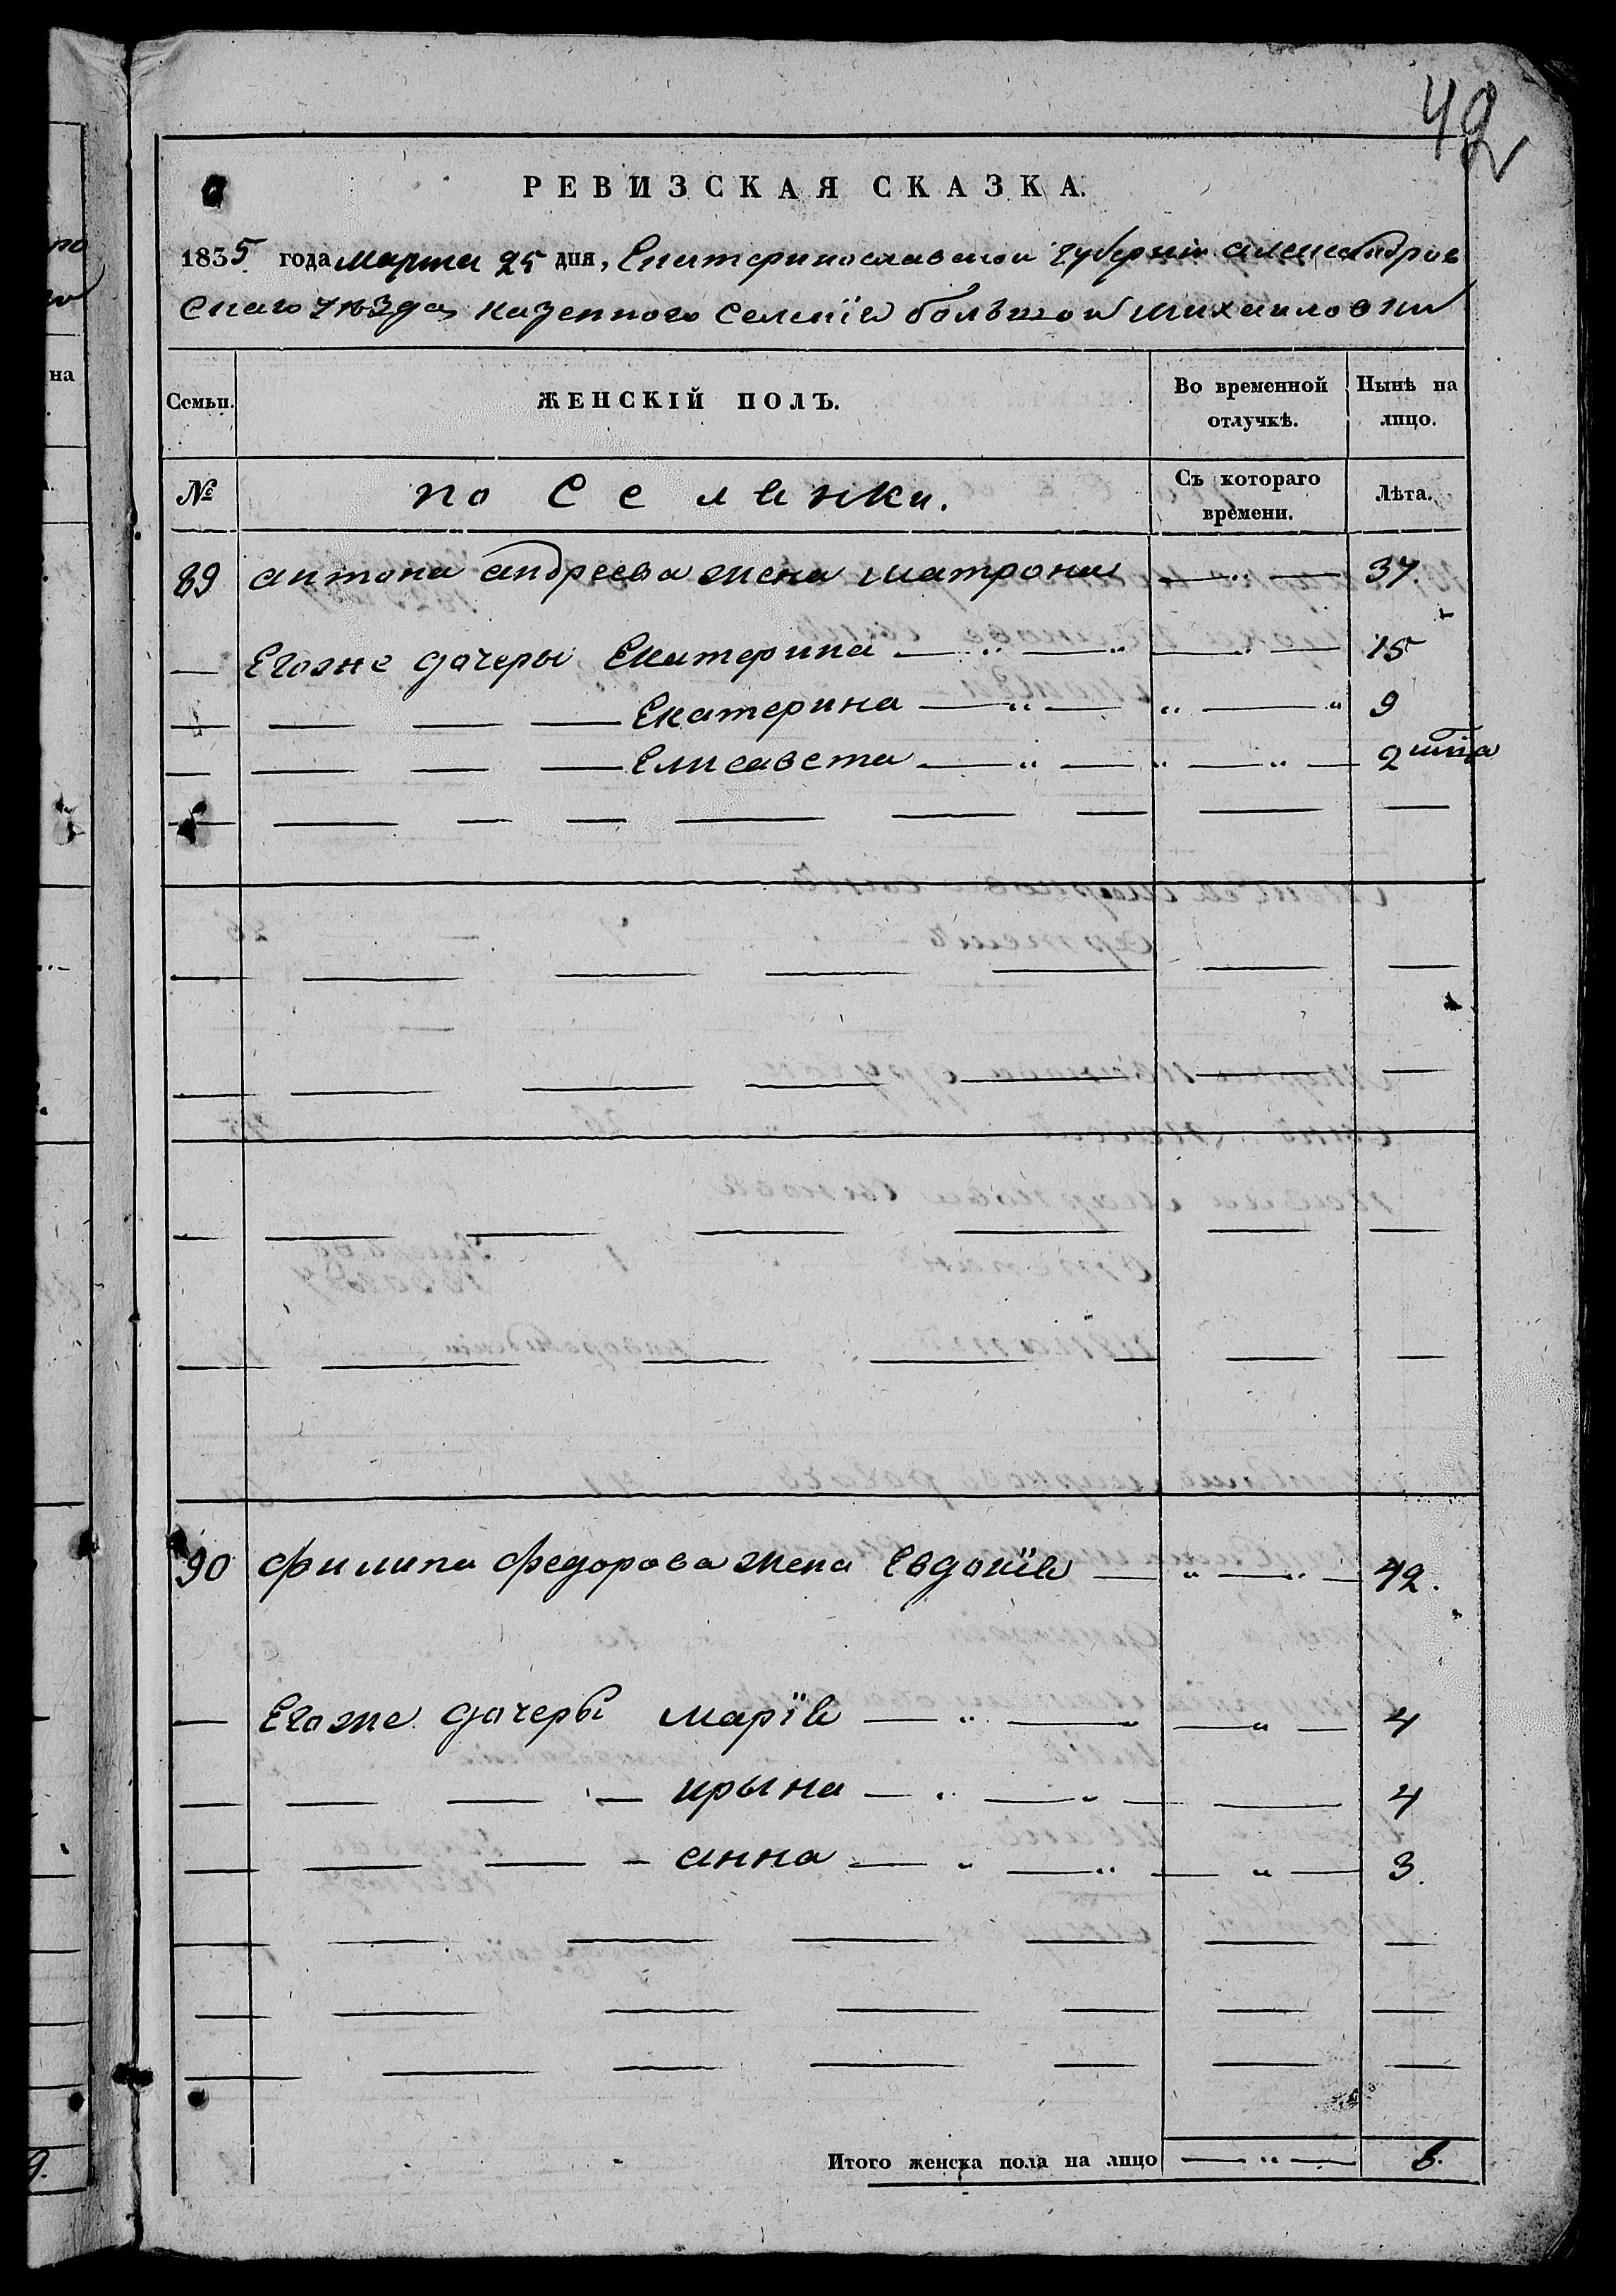 42
РЕВИЗСКАЯ СКАЗКА.
1835 года марта 25 дня, Екатеринославской губерніи александров
скаго уѣзда, казенного селенія большой михаиловки
Семьи. ЖЕНСКІЙ ПОЛЪ. Во временной отлучкѣ. Нынѣ на лицо.
№ по Се лянки. Съ котораго времени. Лѣта.
89 антона андреева жена матрона 37.
Егоже дочеры Екатерина 15
Екатерина 9
Елисавета 2
90 филипа федорова жена Евдокія 42.
Егоже дочеры марія 4
ирына 4
анна 3.
Итого женска пола на лицо 8.